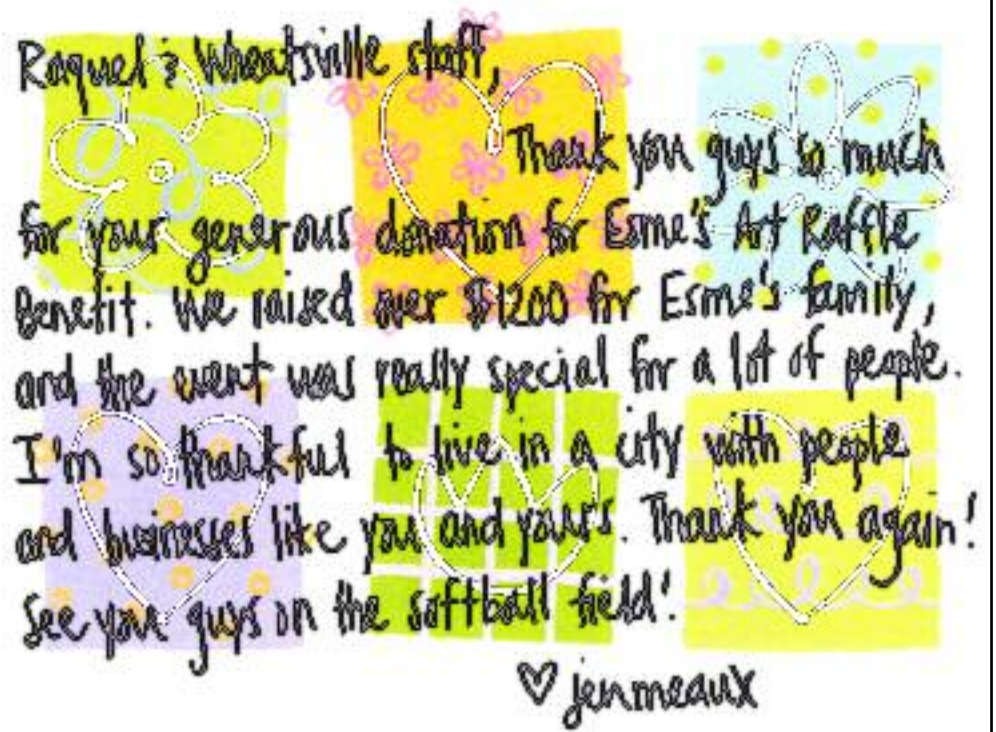 Raquel & Wheatsville staff,
Thank you guys so much
for your generous donation for Esme's Art Raffle
Benefit. We raised over $1200 for Esme's family,
and the event was really special for a lot of people.
I'm so thankful to live in a city with people
and businesses like you and yours. Thank you again!
See you guys on the softball field!
♡ jenmeaux